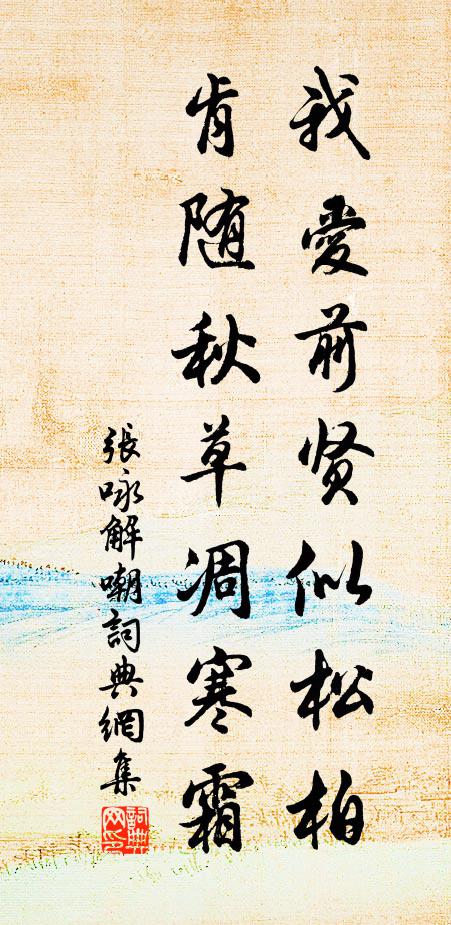 我愛前贤似松柏
肯随秋草凋寒霜
張咏解嘲詞典網集
詞典网